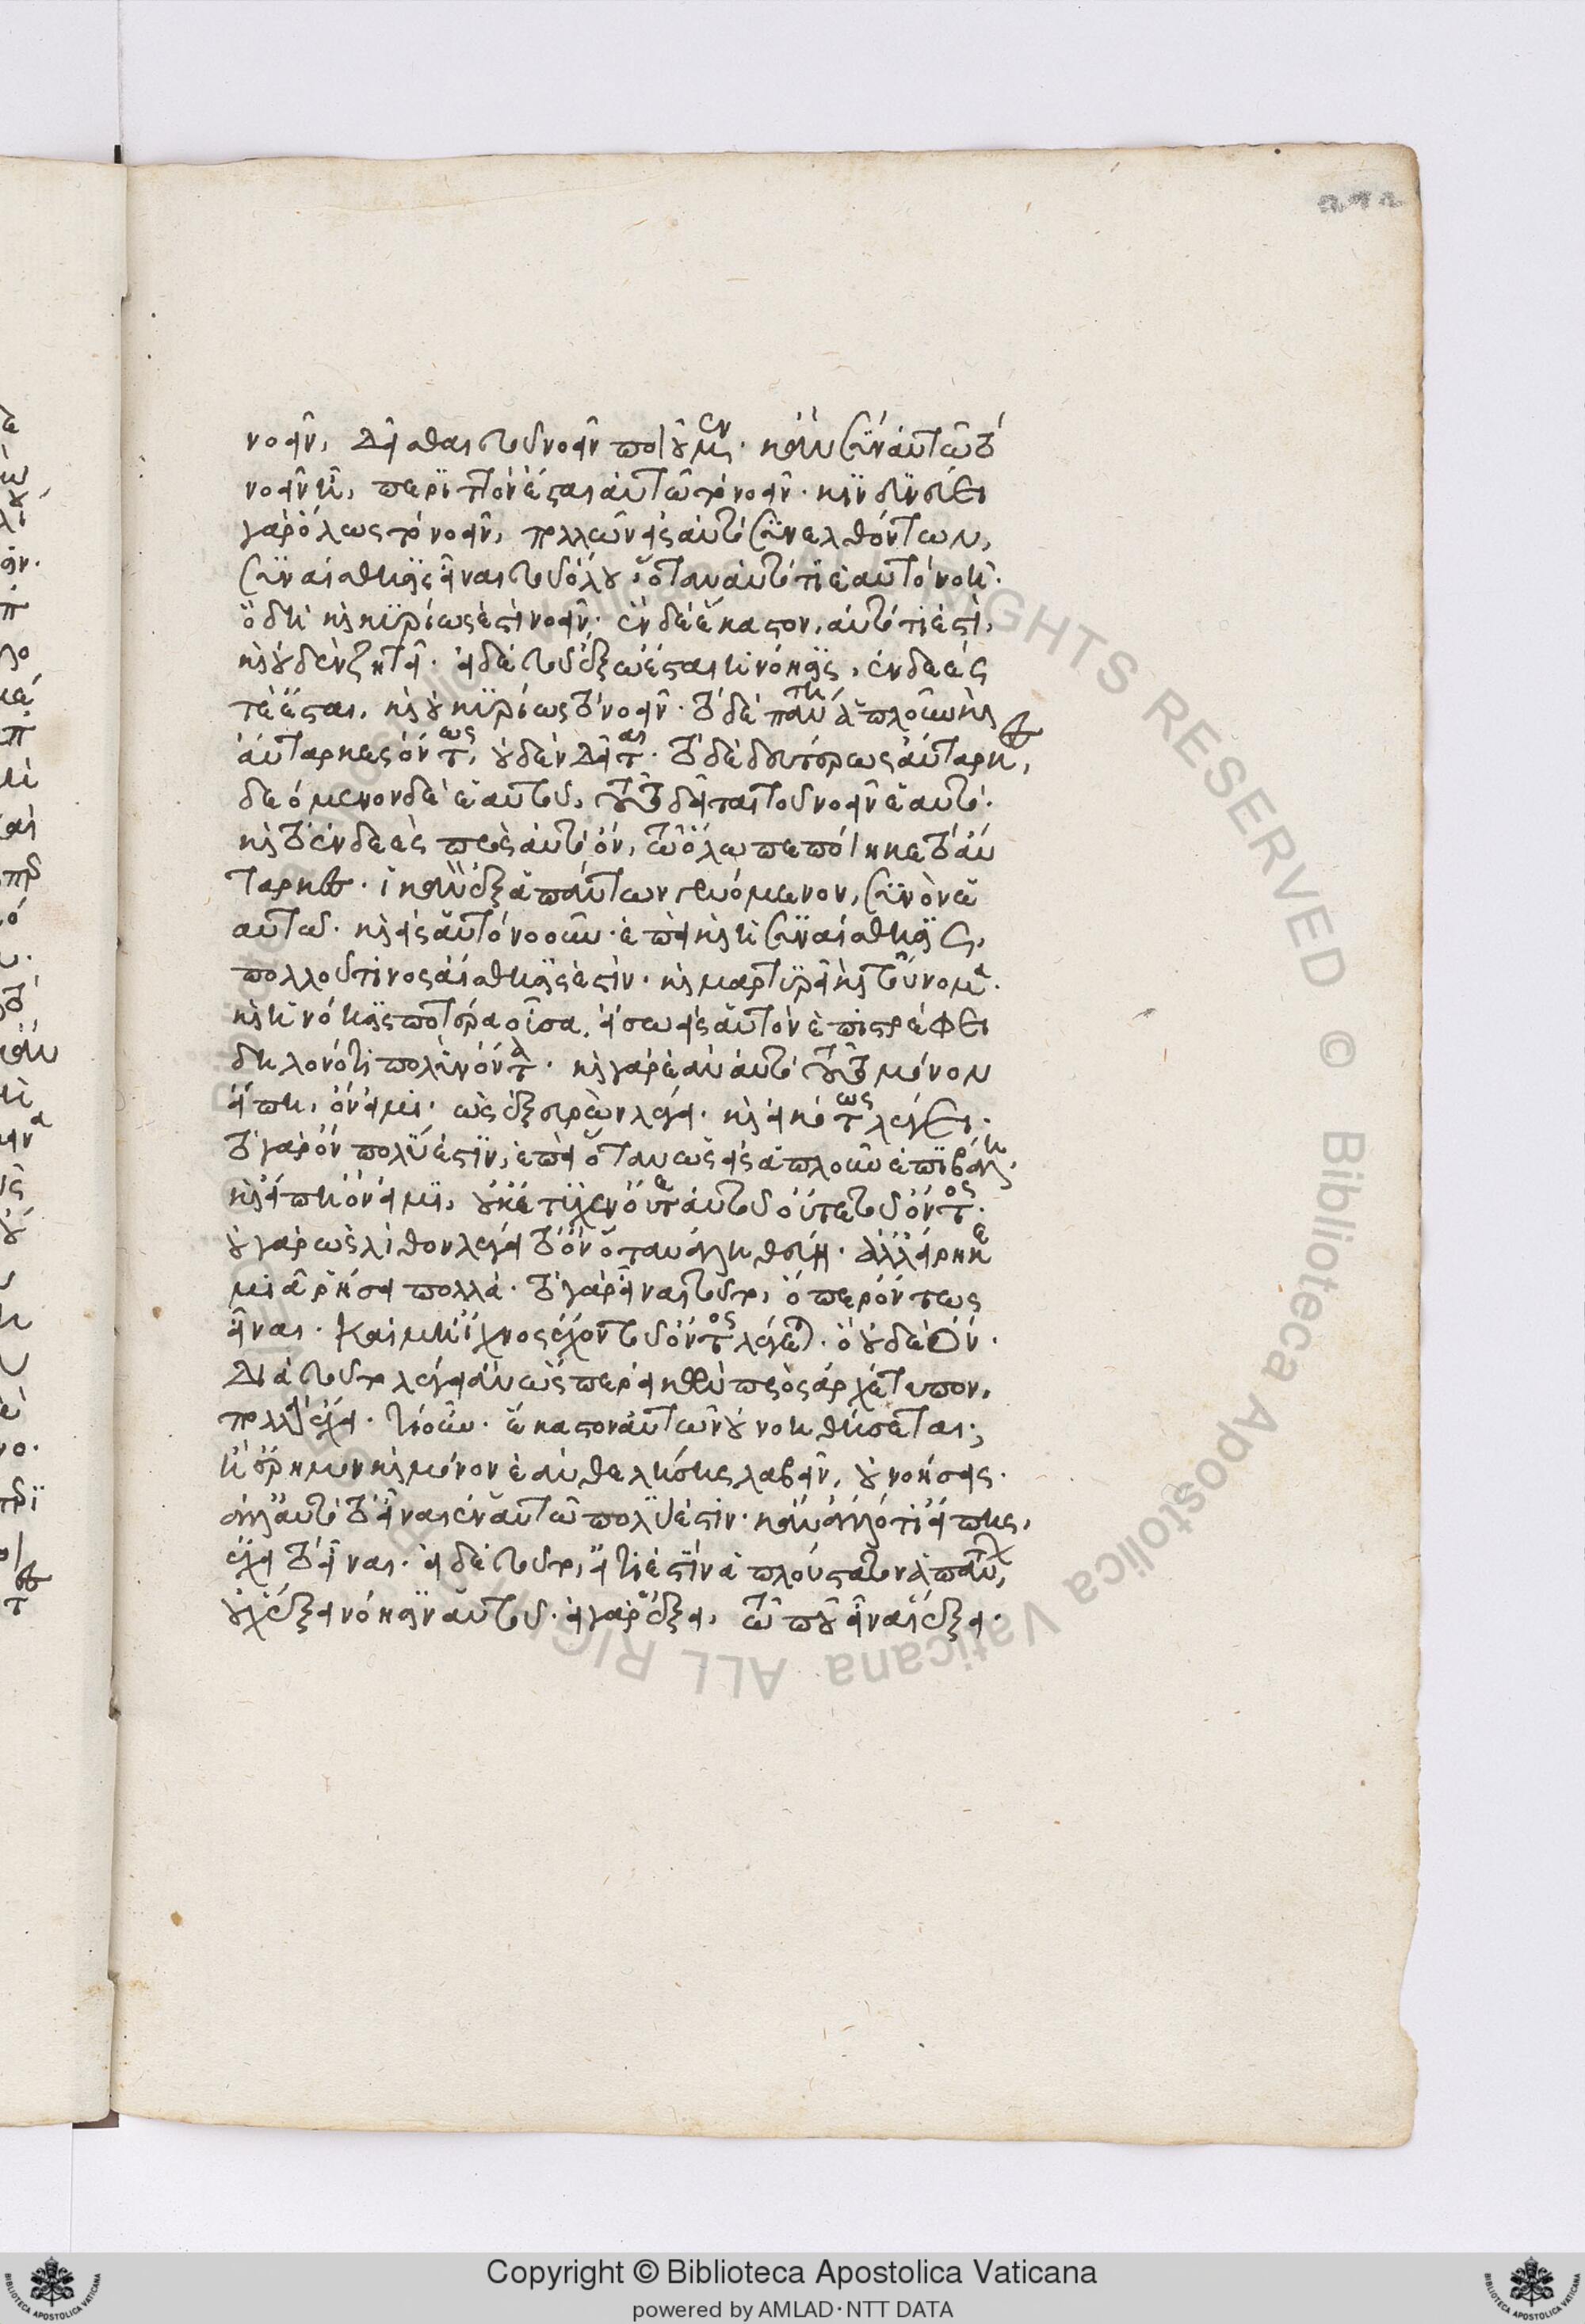 νοεῖν, δεῖσθαι τοῦ νοεῖν ποιοῦμεν. κἂν συνῇ αὐτῷ τὸ
νοεῖν ᾖ, περιττὸν ἔσται αὐτῷ τὸ νοεῖν. κινδυνεύει
γὰρ ὅλως τὸ νοεῖν, πολλῶν εἰς αὐτὸ συνελθόντων,
συναίσθησις εἶναι τοῦ ὅλου, ὅταν αὐτό τι ἑαυτὸ νοῇ.
ὃ δὴ καὶ κυρίως ἐστὶ νοεῖν. ἓν δὲ ἕκαστον, αὐτό τι ἐστὶ,
καὶ οὐδὲν ζητεῖ. εἰ δὲ τοῦ ἔξω ἔσται ἡ νόησις, ἐνδεές
τε ἔσται, καὶ οὐ κυρίως τὸ νοεῖν. τὸ δὲ πάντη ἁπλοῦν καὶ
αὔταρκες ὄντως, οὐδὲν δεῖται. τὸ δὲ δευτέρως αὔταρκες,
δεόμενον δὲ ἑαυτοῦ, τοῦτο δεῖται τοῦ νοεῖν ἑαυτό.
καὶ τὸ ἐνδεὲς πρὸς αὐτὸ ὂν, τῷ ὅλῳ πεποίηκε τὸ αὔ
ταρκες. ἱκανὸν ἐξ ἁπάντων γενόμενον, συνὸν ἑ
αυτῷ. καὶ εἰς αὑτὸ νοοῦν. ἐπεὶ καὶ ἡ συναίσθησις,
πολλοῦ τινος αἴσθησις ἐστὶν. καὶ μαρτυρεῖ καὶ τοὔνομα.
καὶ ἡ νόησις προτέρα οὖσα, εἴσω εἰς αὐτὸν ἐπιστρέφει
δηλονότι πολὺν ὄντα. καὶ γὰρ ἐὰν αὐτὸ τοῦτο μόνον
εἴπῃ, ὄν εἰμι. ὡς ἐξευρὼν λέγει. καὶ εἰκότως λέγει.
τὸ γὰρ ὂν πολύ ἐστιν, ἐπεὶ ὅταν ὡς εἰς ἁπλοῦν ἐπιβάλῃ.
καὶ εἴπῃ ὄν εἰμι, οὐκ ἔτυχεν οὔτε αὐτοῦ οὔτε τοῦ ὄντος.
οὐ γὰρ ὡς λίθον λέγει τὸ ὂν ὅταν ἀληθεύῃ. ἀλλ᾽ εἴρηκε
μιᾷ ῥήσει πολλά. τὸ γὰρ εἶναι τοῦτο, ὅπερ ὄντως
εἶναι. καὶ μὴ ἴχνος ἔχον τοῦ ὄντος λέγεται. ὃ οὐδὲ ὂν.
διὰ τοῦτο λέγει ἂν ὥσπερ εἰκὼν πρὸς ἀρχέτυπον,
πολλὰ ἔχει. τί οὖν. ἕκαστον αὐτῶν οὐ νοηθήσεται;
ἢ ἔρημον καὶ μόνον ἐὰν θελήσῃς λαβεῖν, οὐ νοήσεις.
ἀλλ᾽ αὐτὸ τὸ εἶναι ἐν αὑτῷ πολύ ἐστιν. κἂν ἄλλό τι εἴπῃς,
ἔχει τὸ εἶναι. εἰ δὲ τοῦτο, εἴ τι ἐστὶν ἁπλούστατον ἁπάντων,
οὐχ ἕξει νόησιν αὑτοῦ. εἰ γὰρ ἕξει, τῷ πολὺ εἶναι ἕξει.